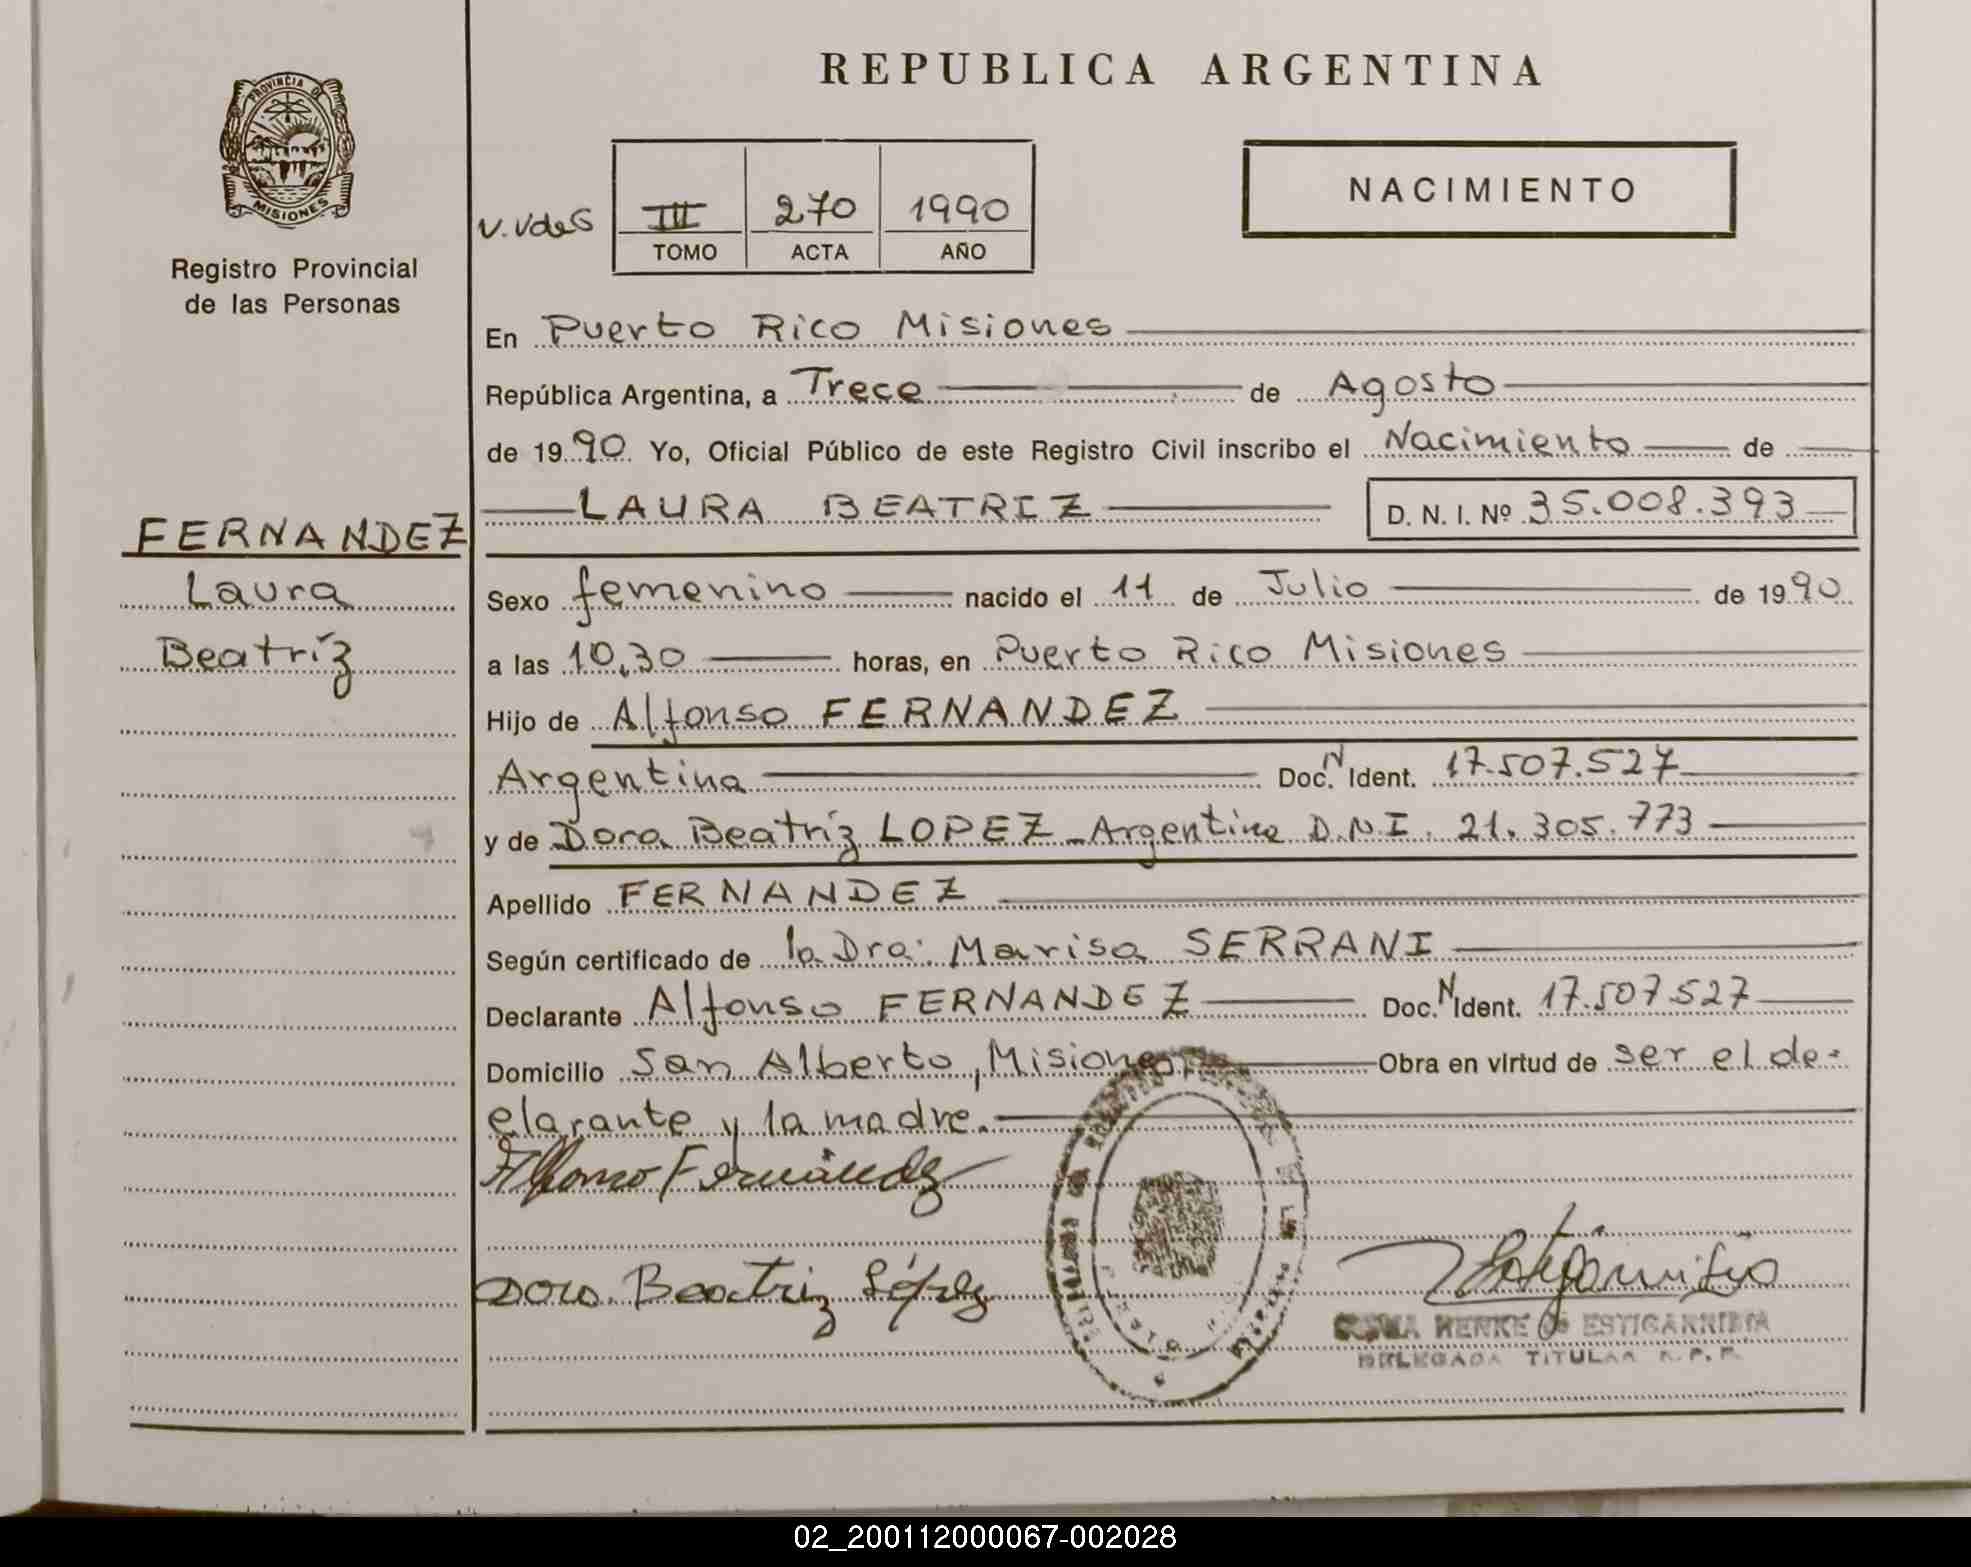 REPUBLICA ARGENTINA
PROVINCIA DE
MISIONES
Registro Provincial
de las Personas
V. Vdes
III 270 1990
TOMO ACTA AÑO
NACIMIENTO
En Puerto Rico Misiones
República Argentina, a Trece de Agosto
de 1990 Yo, Oficial Público de este Registro Civil inscribo el Nacimiento de
LAURA BEATRIZ D. N. I. Nº 35.008.393
FERNANDEZ
Laura
Beatríz
Sexo femenino nacido el 11 de Julio de 1990
a las 10,30 horas, en Puerto Rico Misiones
Hijo de Alfonso FERNANDEZ
Argentina Doc. N Ident. 17.507.527
y de Dora Beatríz LOPEZ - Argentina D.N.I. 21.305.773
Apellido FERNANDEZ
Según certificado de la Dra. Marisa SERRANI
Declarante Alfonso FERNANDEZ Doc. N Ident. 17.507.527
Domicilio San Alberto, Misiones Obra en virtud de ser el de-
clarante y la madre.
Alfonso Fernández
Dora Beatriz López
HENKE de ESTIGARRIBIA
DELEGADA TITULAR R. P. P.
02_200112000067-002028